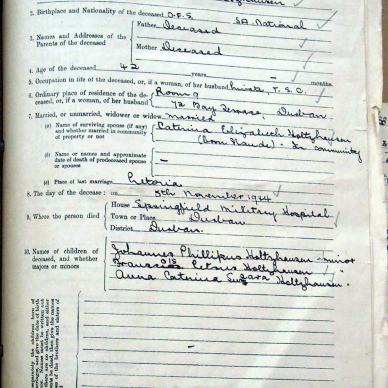 2. Birthplace and Nationality of the deceased O.F.S. SA. National
3. Names and Addresses of the Parents of the deceased
Father Deceased
Mother Deceased
4. Age of the deceased 42 years – months.
5. Occupation in life of the deceased, or, if a woman, of her husband Private, T.S.C.
6. Ordinary place of residence of the deceased, or, if a woman, of her husband Room 9
72 May Terrace, Durban.
7. Married, or unmarried, widower or widow married
(a) Name of surviving spouse (if any) and whether married in community of property or not
Catherina Elizabeth Holtzhausen
(born Naude). In community
(b) Name or names and approximate date of death of predeceased spouse or spouses –
(c) Place of last marriage Pretoria
8. The day of the decease: on 8th November 1944
9. Where the person died
House Springfield Military Hospital
Town or Place Durban
District Durban.
10. Names of children of deceased, and whether majors or minors
Johannes Phillipus Holtzhausen - minor
Petrus Holtzhausen "
Anna Catrina Sara Holtzhausen.